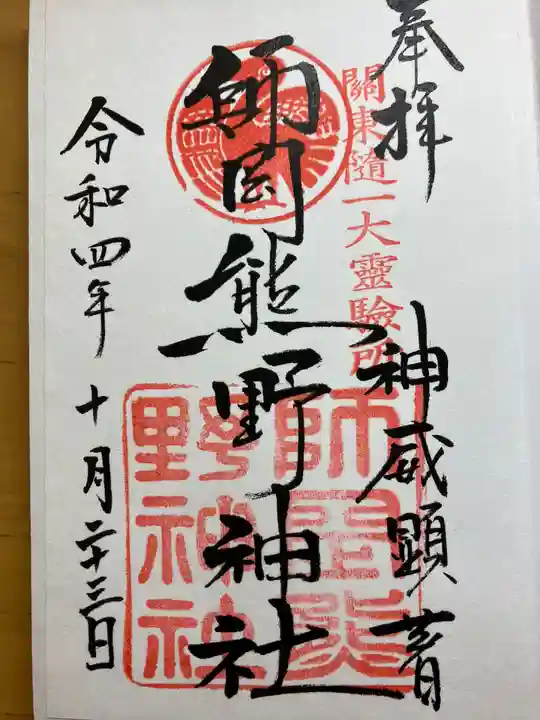 奉拝
關東随一大靈驗所
神威顕著
師岡熊野神社
師岡熊
野神社
令和四年 十月二十三日